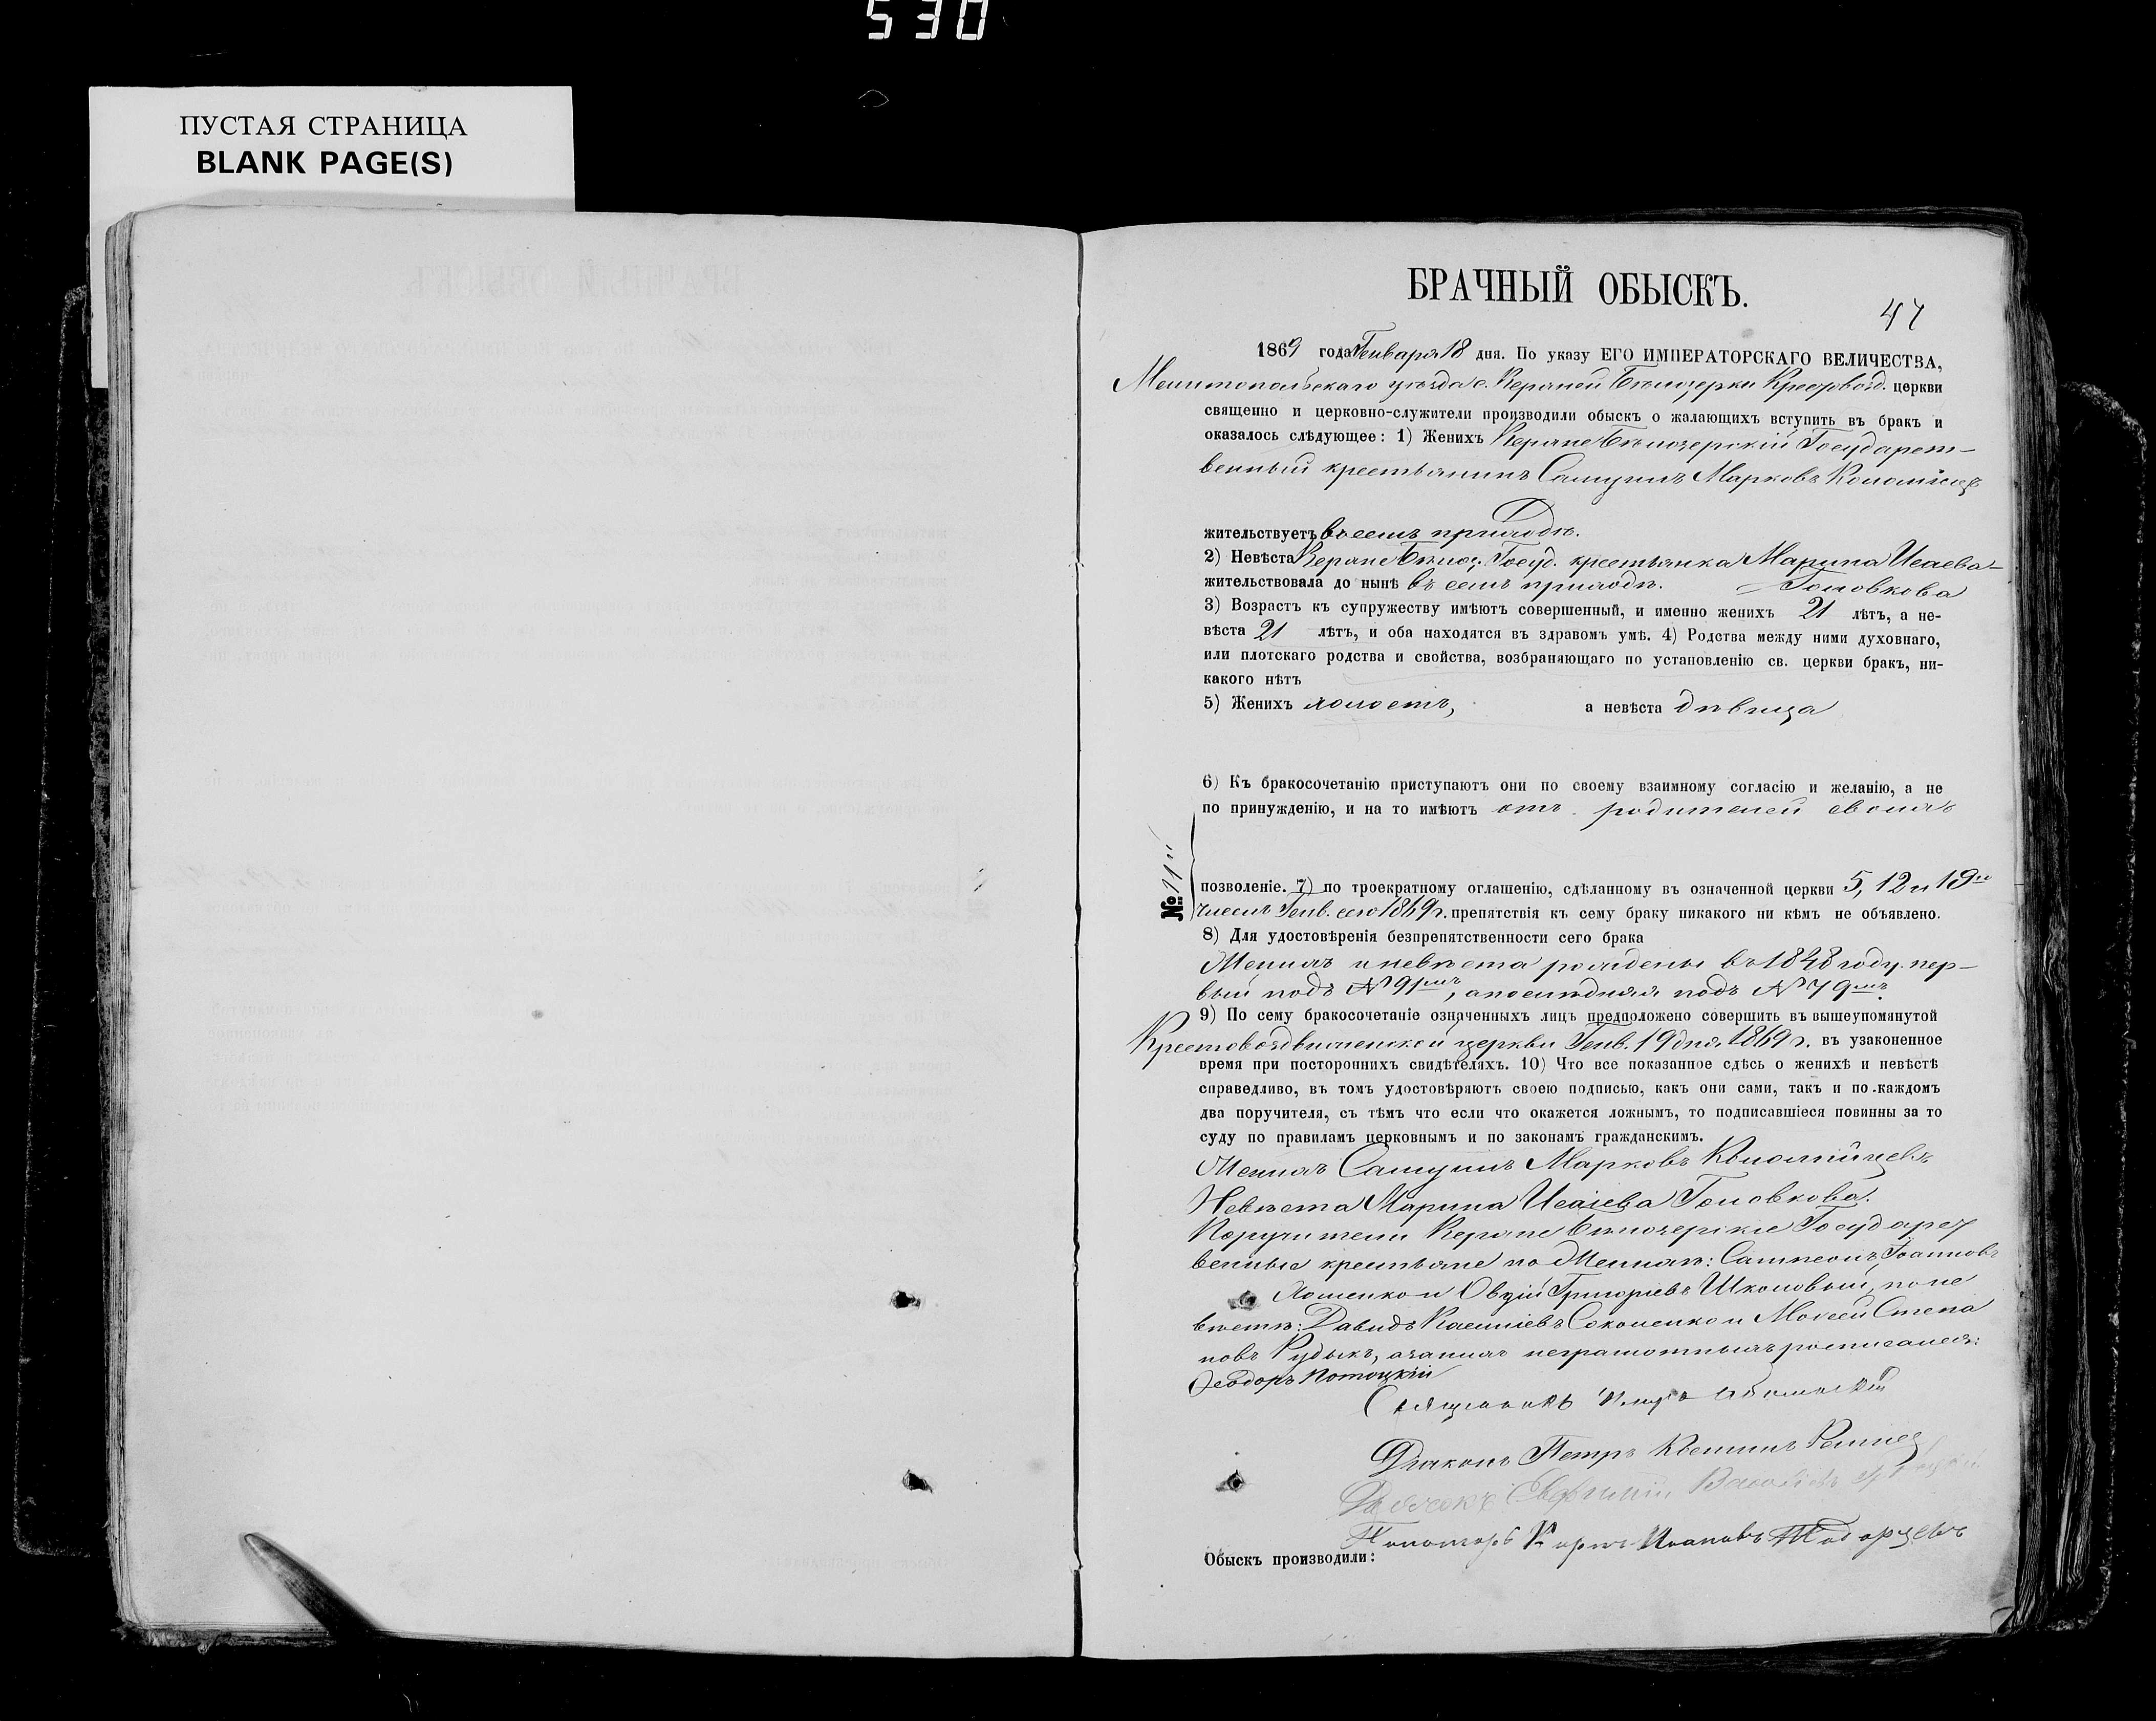 530
ПУСТАЯ СТРАНИЦА
BLANK PAGE(S)
БРАЧНЫЙ ОБЫСКЪ.
47
1869 года Генваря 18 дня. По указу ЕГО ИМПЕРАТОРСКАГО ВЕЛИЧЕСТВА,
Мелитопольскаго уѣзда с. Верхней Бѣлозерки Крестовозд. церкви
священно и церковно-служители производили обыскъ о жалающихъ вступить въ бракъ и
оказалось слѣдующее: 1) Женихъ Верхне Бѣлозерскій Государст-
венный крестьянинъ Самуилъ Марковъ Коломіецъ
жительствуетъ въ семъ приходѣ.
2) Невѣста Верхне Бѣлоз. Госуд. крестьянка Марина Исаева-
жительствовала до нынѣ въ семъ приходѣ. Головкова
3) Возрастъ къ супружеству имѣютъ совершенный, и именно женихъ 21 лѣтъ, а не-
вѣста 21 лѣтъ, и оба находятся въ здравомъ умѣ. 4) Родства между ними духовнаго,
или плотскаго родства и свойства, возбраняющаго по установленію св. церкви бракъ, ни-
какого нѣтъ
5) Женихъ холостъ, а невѣста дѣвица
6) Къ бракосочетанію приступаютъ они по своему взаимному согласію и желанію, а не
по принужденію, и на то имѣютъ отъ родителей своихъ
№ 11й
позволеніе. 7) по троекратному оглашенію, сдѣланному въ означенной церкви 5, 12 и 18го
чиселъ Генв. сего 1869 г. препятствія къ сему браку никакого ни кѣмъ не объявлено.
8) Для удостовѣренія безпрепятственности сего брака
Женихъ и невѣста рождены въ 1848 году. пер-
вый подъ № 91мъ, а послѣдняя подъ № 79мъ.
9) По сему бракосочетаніе означенныхъ лицъ предположено совершить въ вышеупомянутой
Крестовоздвиженской церкви Генв. 19 дня 1869 г. въ узаконенное
время при постороннихъ свидѣтеляхъ. 10) Что все показанное сдѣсь о женихѣ и невѣстѣ
справедливо, въ томъ удостовѣряютъ своею подписью, какъ они сами, такъ и по каждомъ
два поручителя, съ тѣмъ что если что окажется ложнымъ, то подписавшіеся повинны за то
суду по правиламъ церковнымъ и по законамъ гражданскимъ.
Женихъ Самуилъ Марковъ Коломійцевъ
Невѣста Марина Исаіева Головкова.
Поручители Верхне Бѣлозерскіе Государст
венные крестьяне по Женихѣ: Сампсонъ Іоанновъ
Яценко и Овдій Григоріевъ Школовый, по не
вѣстѣ: Давидъ Касиліевъ Соколенко и Моисей Степа
новъ Рудыкъ, а за нихъ неграмотныхъ росписался:
Ѳеодоръ Потоцкій
Священникъ
Діаконъ Петръ
Дьячокъ Евфимій
Пономарь Карпъ Ивановъ
Обыскъ производили: